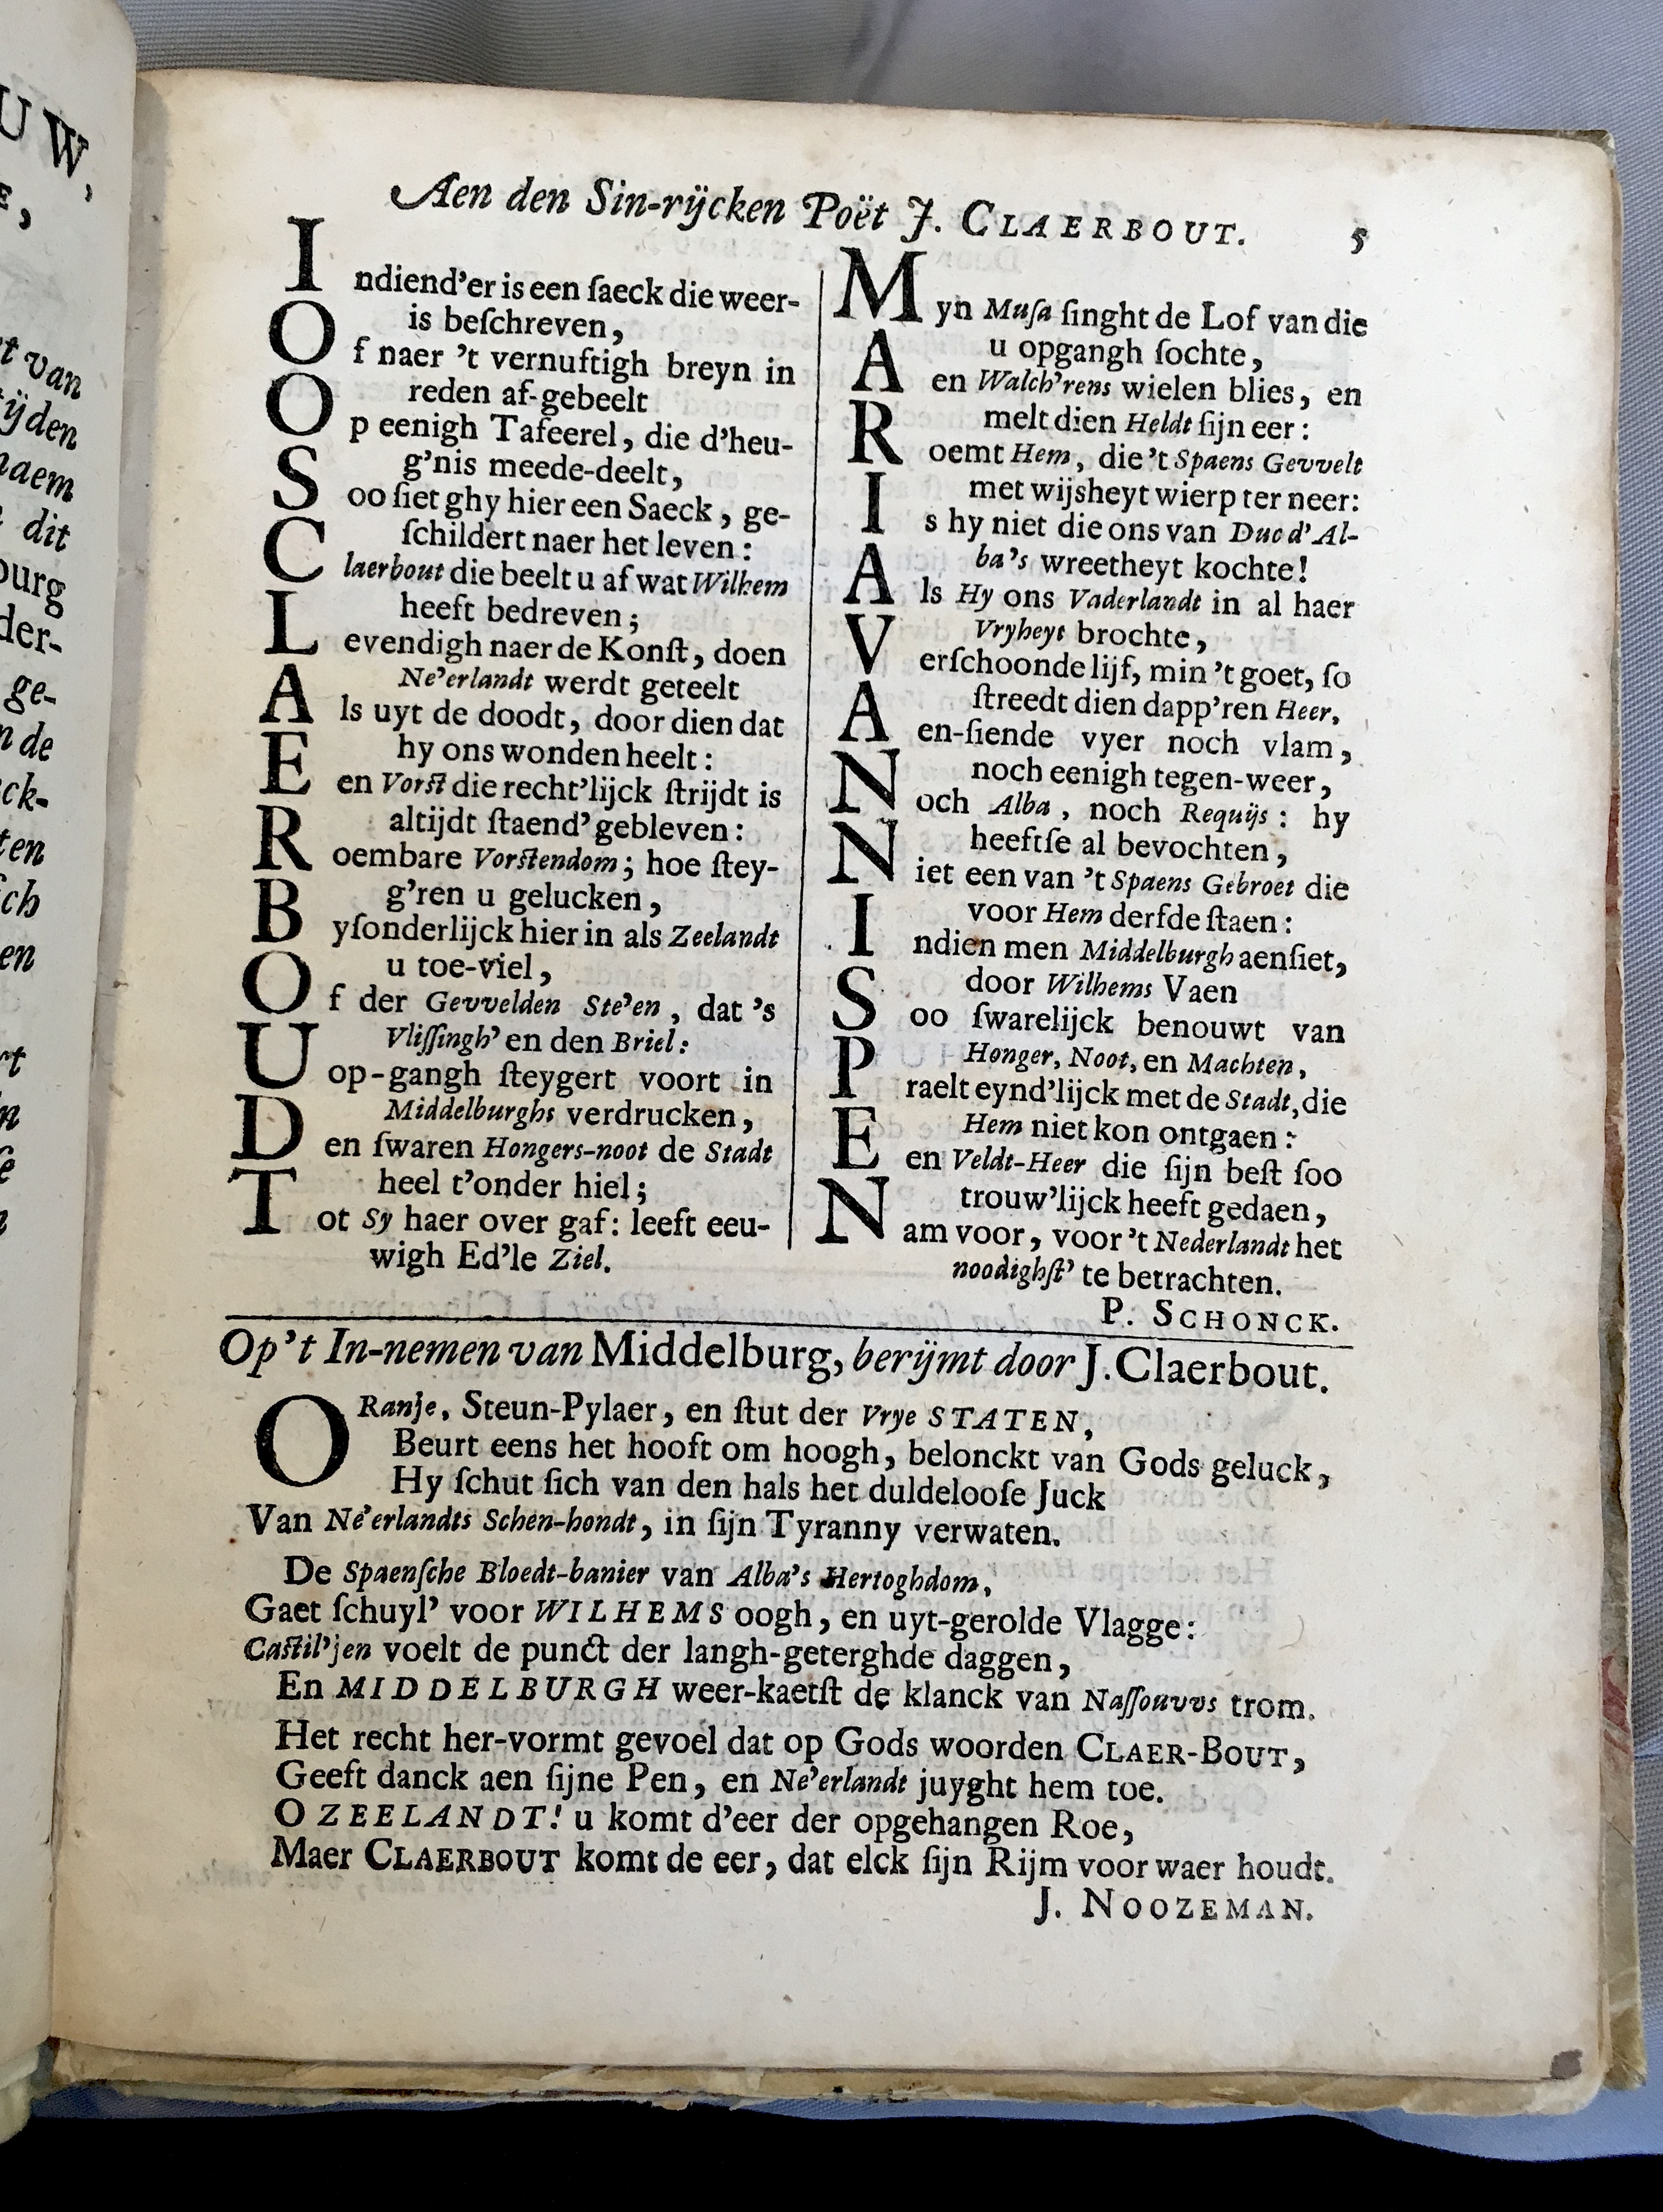 UW,
E,
t van
ijden
naem
dit
ourg
der-
ge-
n de
ck-
ten
ſch
en
Aen den Sin-rijcken Poët J. CLAERBOUT. 5
Indiend'er is een ſaeck die weer-
is beſchreven,
Of naer 't vernuftigh breyn in
reden af-gebeelt
Op eenigh Tafeerel, die d'heu-
g'nis meede-deelt,
Soo ſiet ghy hier een Saeck, ge-
ſchildert naer het leven:
Claerbout die beelt u af wat Wilhem
heeft bedreven;
Levendigh naer de Konſt, doen
Ne'erlandt werdt geteelt
Als uyt de doodt, door dien dat
hy ons wonden heelt:
Een Vorſt die recht'lijck ſtrijdt is
altijdt ſtaend' gebleven:
Roembare Vorſtendom; hoe ſtey-
g'ren u gelucken,
Byſonderlijck hier in als Zeelandt
u toe-viel,
Of der Gevvelden Ste'en, dat 's
Vliſſingh' en den Briel:
U op-gangh ſteygert voort in
Middelburghs verdrucken,
Den ſwaren Hongers-noot de Stadt
heel t'onder hiel;
Tot Sy haer over gaf: leeft eeu-
wigh Ed'le Ziel.
Myn Muſa ſinght de Lof van die
u opgangh ſochte,
Aen Walch'rens wielen blies, en
melt dien Heldt ſijn eer:
Roemt Hem, die 't Spaens Gevvelt
met wijsheyt wierp ter neer:
Is hy niet die ons van Duc d' Al-
ba's wreetheyt kochte!
Als Hy ons Vaderlandt in al haer
Vryheyt brochte,
Verſchoonde lijf, min 't goet, ſo
ſtreedt dien dapp'ren Heer,
Aen-ſiende vyer noch vlam,
noch eenigh tegen-weer,
Noch Alba, noch Requijs: hy
heeftſe al bevochten,
Niet een van 't Spaens Gebroet die
voor Hem derfde ſtaen:
Indien men Middelburgh aenſiet,
door Wilhems Vaen
Soo ſwarelijck benouwt van
Honger, Noot, en Machten,
Praelt eynd'lijck met de Stadt, die
Hem niet kon ontgaen:
Een Veldt-Heer die ſijn beſt ſoo
trouw'lijck heeft gedaen,
Nam voor, voor 't Nederlandt het
noodighſt' te betrachten.
P. SCHONCK.
Op 't In-nemen van Middelburg, berijmt door J. Claerbout.
ORanje, Steun-Pylaer, en ſtut der Vrye STATEN,
Beurt eens het hooft om hoogh, belonckt van Gods geluck,
Hy ſchut ſich van den hals het duldelooſe Juck
Van Ne'erlandts Schen-hondt, in ſijn Tyranny verwaten.
De Spaenſche Bloedt-banier van Alba's Hertoghdom,
Gaet ſchuyl' voor WILHEMS oogh, en uyt-gerolde Vlagge:
Caſtil'jen voelt de punct der langh-geterghde daggen,
En MIDDELBURGH weer-kaetſt de klanck van Naſſouvvs trom.
Het recht her-vormt gevoel dat op Gods woorden CLAER-BOUT,
Geeft danck aen ſijne Pen, en Ne'erlandt juyght hem toe.
O ZEELANDT! u komt d'eer der opgehangen Roe,
Maer CLAERBOUT komt de eer, dat elck ſijn Rijm voor waer houdt.
J. NOOZEMAN.